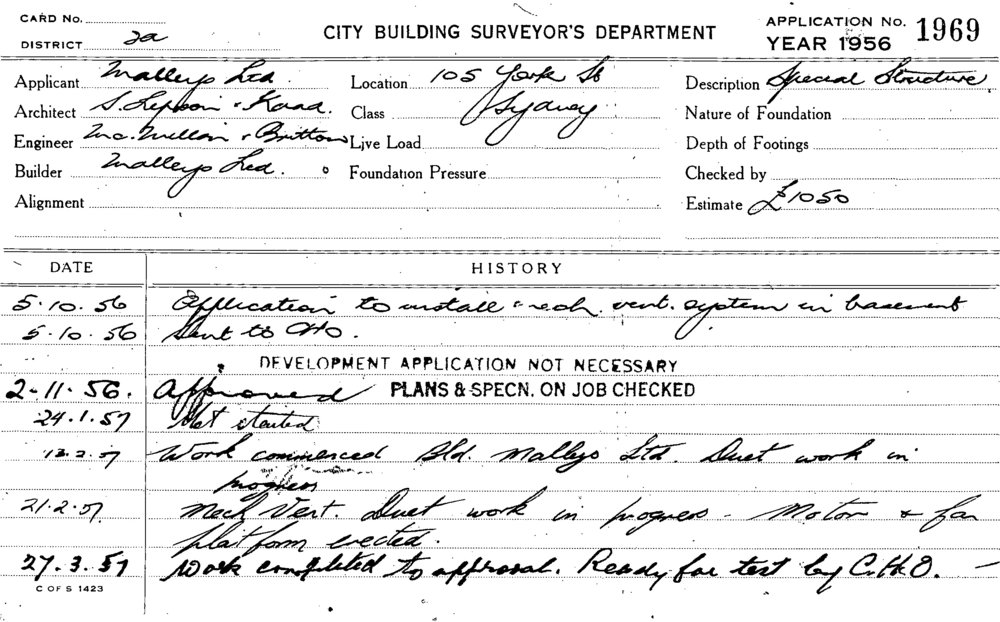 CARD No.
DISTRICT 2a
CITY BUILDING SURVEYOR'S DEPARTMENT
APPLICATION No. 1969
YEAR 1956
Applicant Malleys Ltd
Architect S. Lipson & Kaad.
Engineer Mc. Millan & Britton
Builder Malleys Ltd.
Alignment
Location 105 York St
Class Sydney
Live Load
Foundation Pressure
Description Special Structure
Nature of Foundation
Depth of Footings
Checked by
Estimate £1050
DATE HISTORY
5.10.56 Application to install mech. vent. system in basement
5.10.56 Sent to CHO.
DEVELOPMENT APPLICATION NOT NECESSARY
2-11-56. Approved PLANS & SPECN. ON JOB CHECKED
24.1.57 Not started
13.2.57 Work commenced Bld. Malleys Ltd. Duct work in
progress
21.2.57 Mech Vent. Duct work in progress - Motor & fan
platform erected.
27.3.57 Work completed to approval. Ready for test by C.H.O.
C OF S 1423